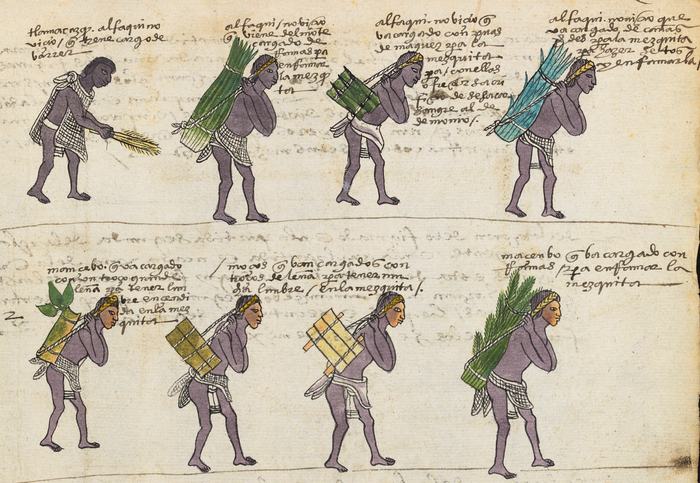 tlamacazqz. alfaqui no
vicio / q̄ tiene cargo de
barrer
alfaqui / novicio
q̄ viene del monte
cargado de
Ramas pa
enRamar
la mezq̄
ta
alfaqui. novicio q̄
va cargado con puas
de maguez pa la
mezquita
pa / con ellas
ofrecer sacri
ficio de
sangre al de
monio /.
alfaqui. novicio que
va cargado de cañas
pa la mezquita
pa hazer
y enRamarla /
mancebo. q̄ va cargado
con un troço grande
leña pa tener lun
bre encendi
da en la mez
quita
/ moços q̄ van cargados con
troços de leña pa tener
lunbre / en la mezquita /.
macenbo q̄ va cargado con
Ramas / pa enRamar la
mezquita
2